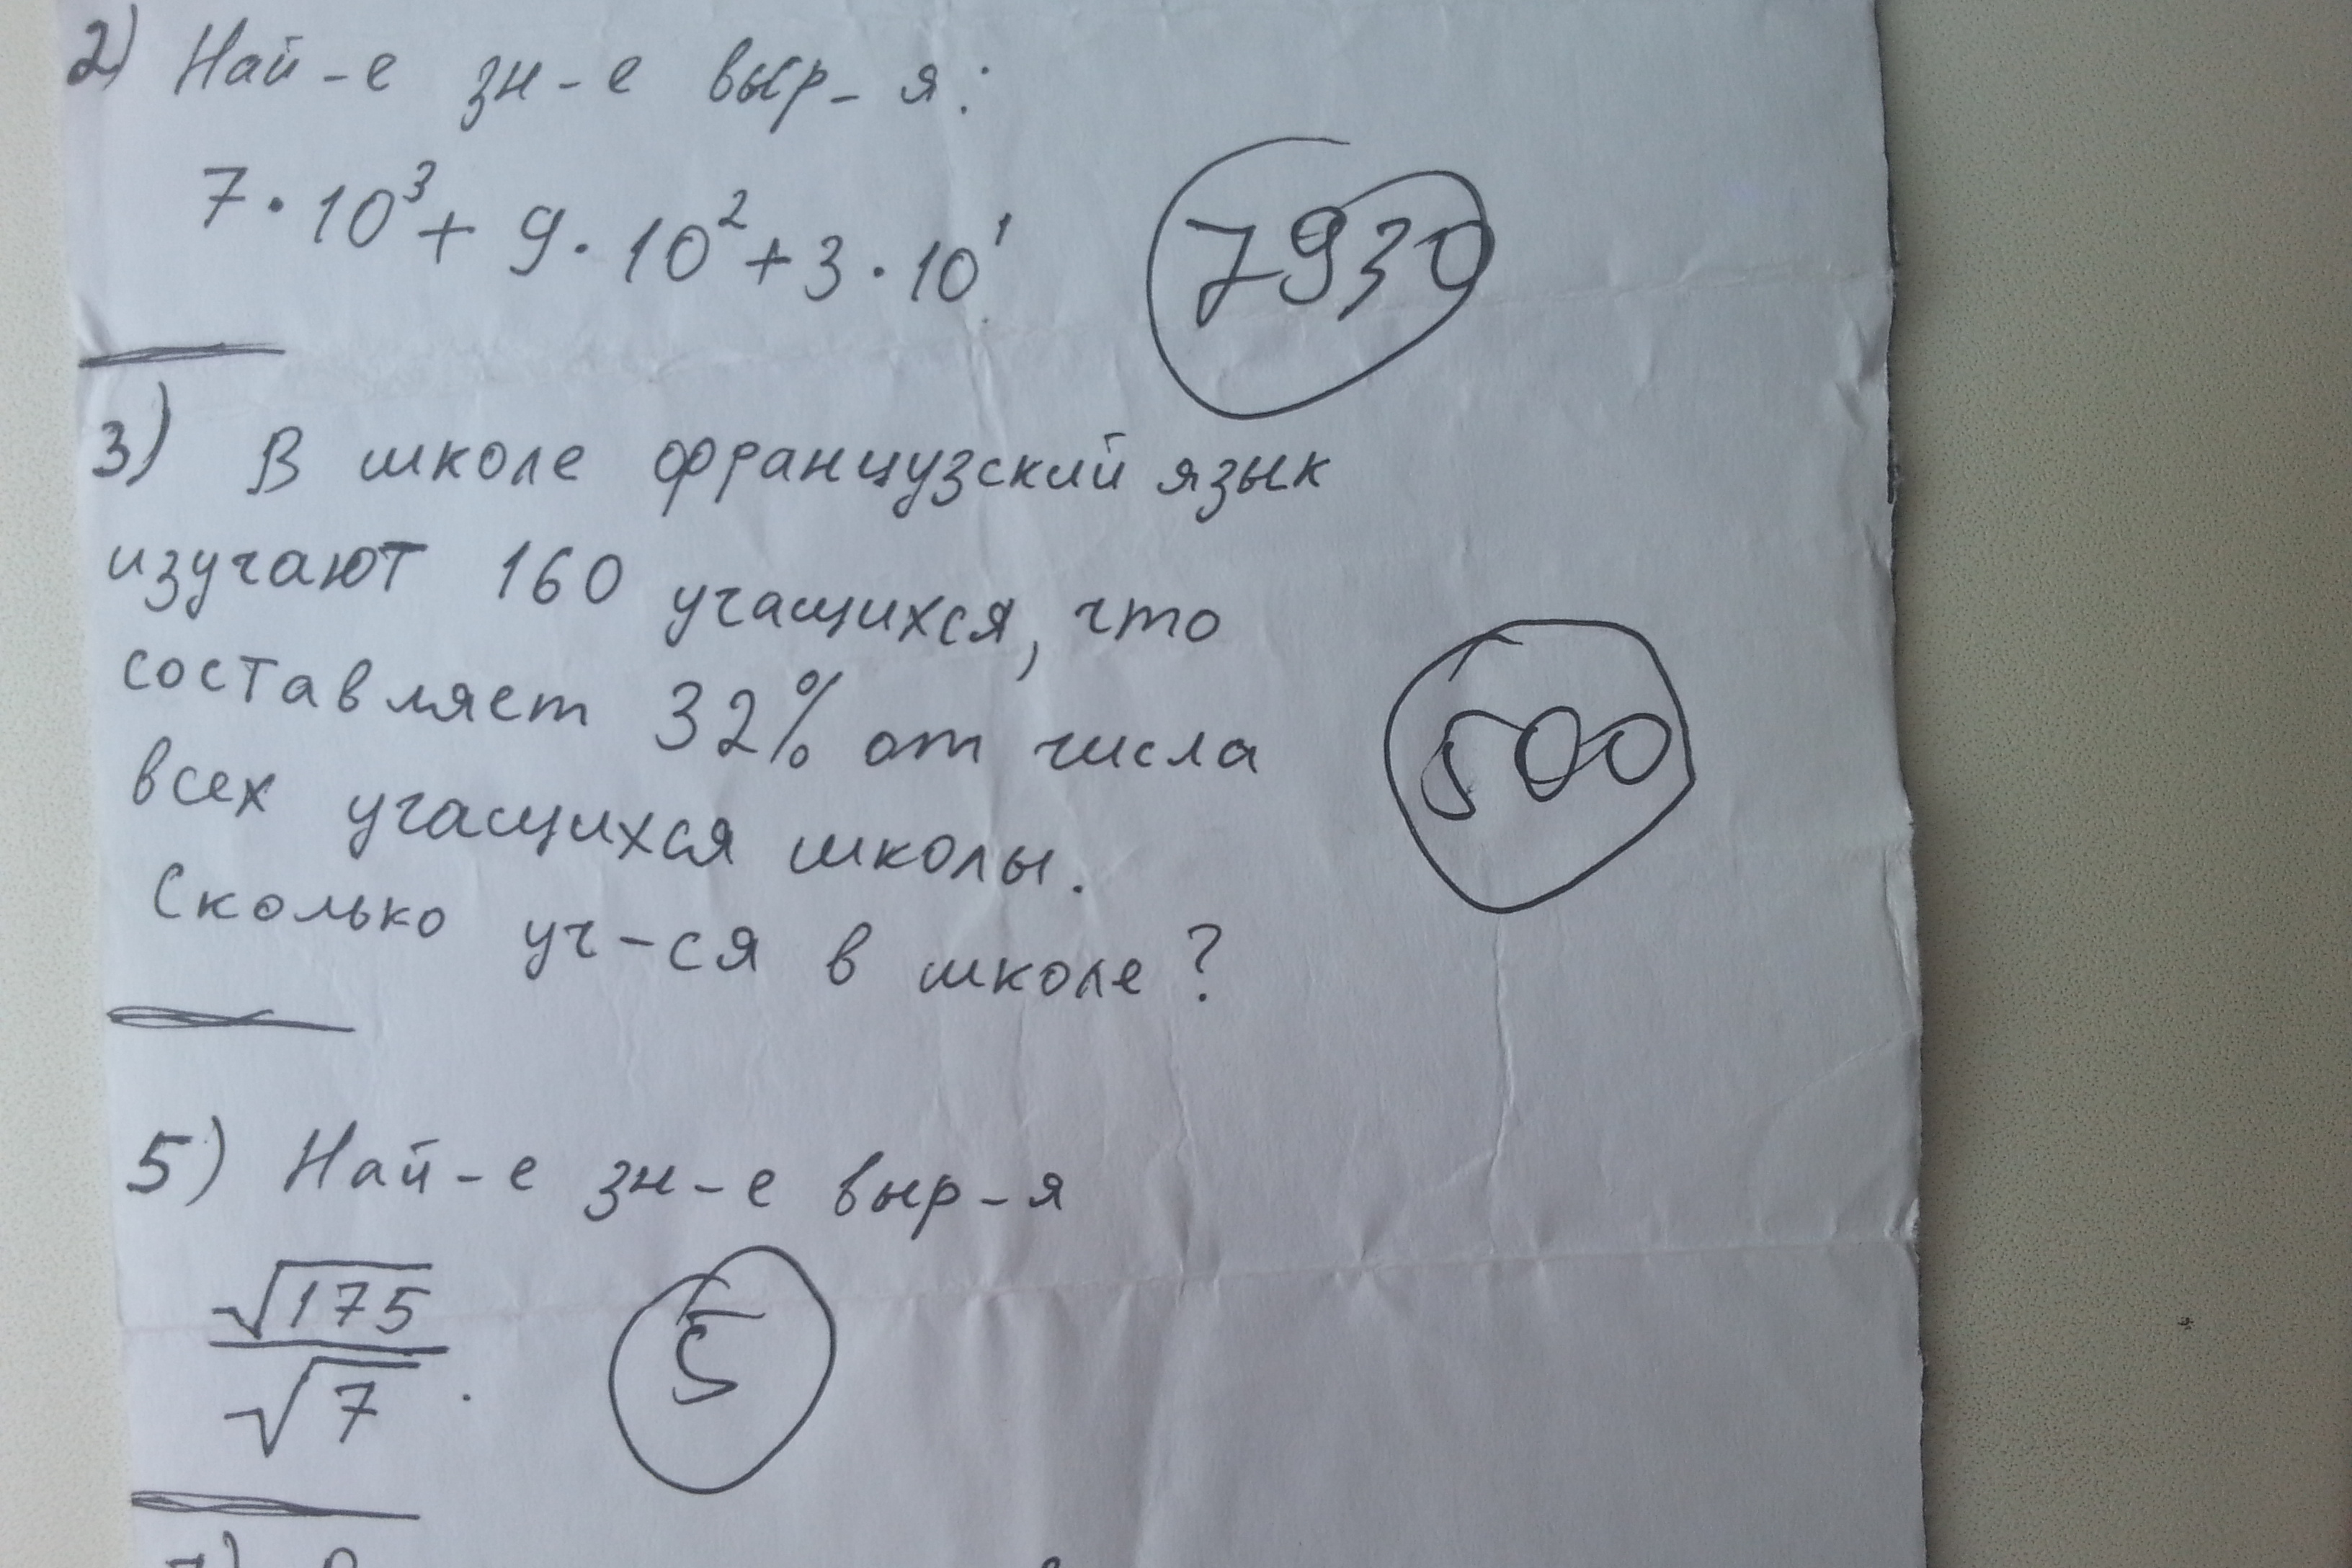 2) Най-е зн-е выр-я:
7 · 10³ + 9 · 10² + 3 · 10¹
7930
3) В школе французский язык
изучают 160 учащихся, что
составляет 32% от числа
всех учащихся школы.
500
Сколько уч-ся в школе?
5) Най-е зн-е выр-я
√175
√7 .
5